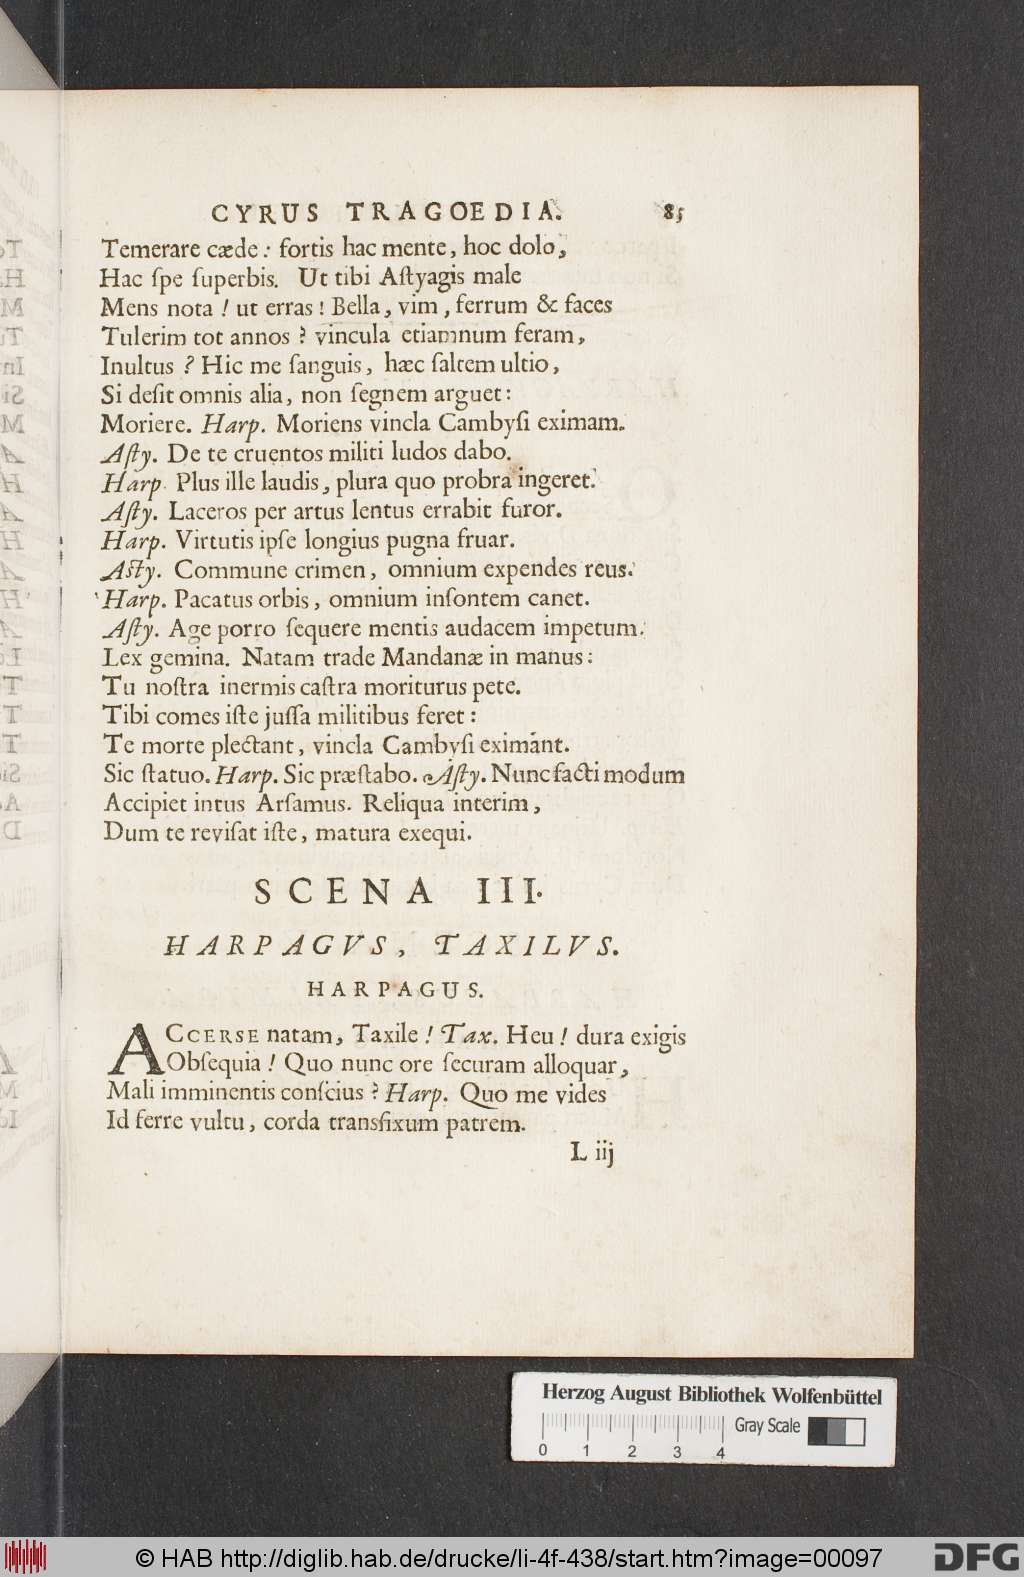 CYRUS TRAGOEDIA. 85
Temerare cæde: fortis hac mente, hoc dolo,
Hac ſpe ſuperbis. Ut tibi Aſtyagis male
Mens nota! ut erras! Bella, vim, ferrum & faces
Tulerim tot annos? vincula etiamnum feram,
Inultus? Hic me ſanguis, hæc ſaltem ultio,
Si deſit omnis alia, non ſegnem arguet:
Moriere. Harp. Moriens vincla Cambyſi eximam.
Aſty. De te cruentos militi ludos dabo.
Harp. Plus ille laudis, plura quo probra ingeret.
Aſty. Laceros per artus lentus errabit furor.
Harp. Virtutis ipſe longius pugna fruar.
Aſty. Commune crimen, omnium expendes reus.
Harp. Pacatus orbis, omnium inſontem canet.
Aſty. Age porro ſequere mentis audacem impetum.
Lex gemina. Natam trade Mandanæ in manus:
Tu noſtra inermis caſtra moriturus pete.
Tibi comes iſte juſſa militibus feret:
Te morte plectant, vincla Cambyſi eximant.
Sic ſtatuo. Harp. Sic præſtabo. Aſty. Nunc facti modum
Accipiet intus Arſamus. Reliqua interim,
Dum te reviſat iſte, matura exequi.
SCENA III.
HARPAGVS, TAXILVS.
HARPAGUS.
ACCERSE natam, Taxile! Tax. Heu! dura exigis
Obſequia! Quo nunc ore ſecuram alloquar,
Mali imminentis conſcius? Harp. Quo me vides
Id ferre vultu, corda transfixum patrem.
L iij
Herzog August Bibliothek Wolfenbüttel
Gray Scale
0 1 2 3 4
© HAB http://diglib.hab.de/drucke/li-4f-438/start.htm?image=00097
DFG